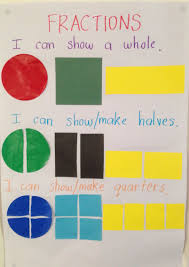 FRACTIONS
I can show a whole.
I can show/make halves.
I can show/make quarters.